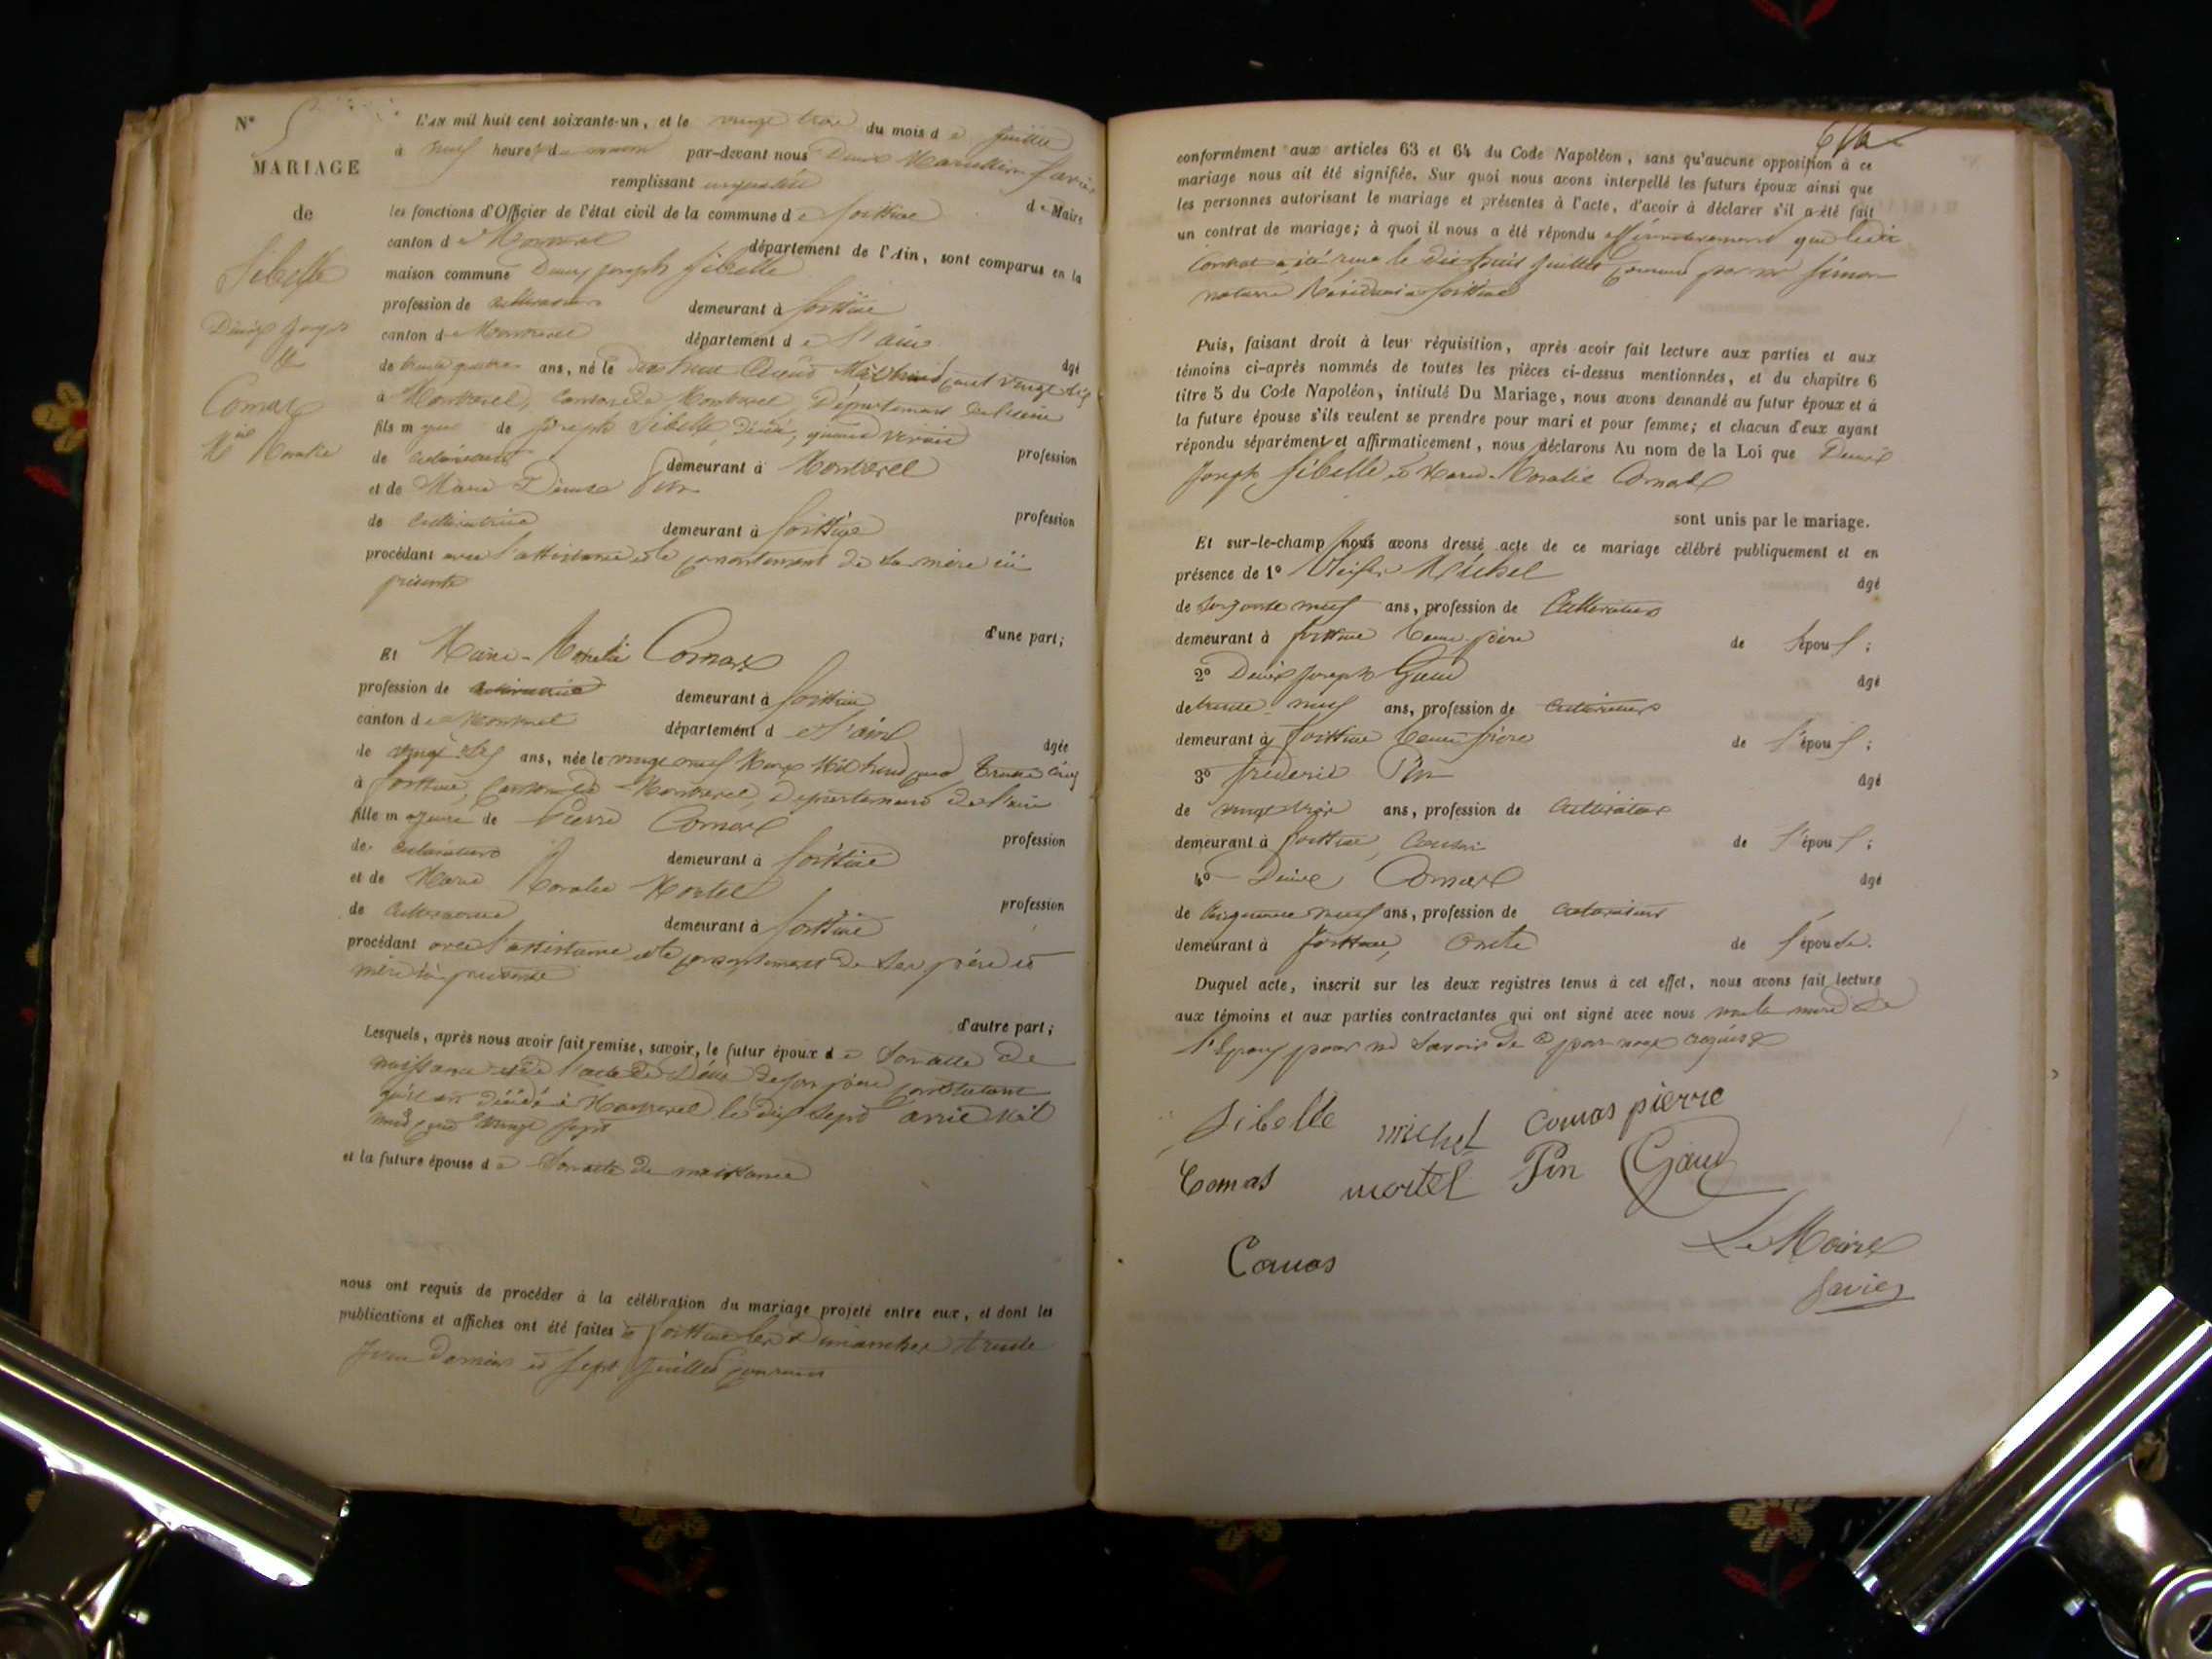 N° 5
MARIAGE
de
Sibelle
Denis Joseph
et
Comas
Mie Rosalie
L'AN mil huit cent soixante-un, et le vingt trois du mois de Juillet
à neuf heures du matin par-devant nous Denis Marcellin Savier
remplissant en qualité de Maire
les fonctions d'Officier de l'état civil de la commune de
canton de Montrevel département de l'Ain, sont comparus en la
maison commune Denis Joseph Sibelle
profession de cultivateur demeurant à
canton de Montrevel département de l'ain
âgé
de trente quatre ans, né le dix huit mil huit cent vingt six
à Montrevel, canton de Montrevel, Département de l'ain
fils majeur de Joseph Sibelle, décédé, quand vivait
profession
de cultivateur demeurant à Montrevel
et de Marie Denise Pin
profession
de cultivatrice demeurant à
procédant avec l'assistance et le consentement de sa mère ici
présente
d'une part;
Et Marie-Rosalie Comas
profession de cultivatrice demeurant à
canton de Montrevel département de l'ain
âgée
de vingt six ans, née le vingt neuf Mars Mil huit cent trente cinq
à canton de Montrevel, Département de l'ain
fille majeure de Pierre Comas
profession
de cultivateur demeurant à
et de Marie Rosalie Mortel
profession
de cultivatrice demeurant à
procédant avec l'assistance et le consentement de ses père et
mère ici présents
d'autre part;
Lesquels, après nous avoir fait remise, savoir, le futur époux de son acte de
naissance et de l'acte de Décès de son père constatant
qu'il est décédé à Montrevel le dix sept mil
huit cent vingt sept
et la future épouse de son acte de naissance
nous ont requis de procéder à la célébration du mariage projeté entre eux, et dont les
publications et affiches ont été faites à les Dimanches trente
Juin dernier et sept Juillet courant
conformément aux articles 63 et 64 du Code Napoléon, sans qu'aucune opposition à ce
mariage nous ait été signifiée. Sur quoi nous avons interpellé les futurs époux ainsi que
les personnes autorisant le mariage et présentes à l'acte, d'avoir à déclarer s'il a été fait
un contrat de mariage; à quoi il nous a été répondu affirmativement que ledit
Contrat a été reçu le dix huit Juillet courant par Me Simon
notaire Résidant à
Puis, faisant droit à leur réquisition, après avoir fait lecture aux parties et aux
témoins ci-après nommés de toutes les pièces ci-dessus mentionnées, et du chapitre 6
titre 5 du Code Napoléon, intitulé Du Mariage, nous avons demandé au futur époux et à
la future épouse s'ils veulent se prendre pour mari et pour femme; et chacun d'eux ayant
répondu séparément et affirmativement, nous déclarons Au nom de la Loi que Denis
Joseph Sibelle et Marie-Rosalie Comas
sont unis par le mariage.
Et sur-le-champ nous avons dressé acte de ce mariage célébré publiquement et en
présence de 1° Michel âgé
de soixante neuf ans, profession de Cultivateur
demeurant à beau-père de l'époux;
2° Denis Joseph Gaud âgé
de trente neuf ans, profession de cultivateur
demeurant à beau frère de l'époux;
3° frédéric Pin âgé
de vingt trois ans, profession de cultivateur
demeurant à Cousin de l'époux;
4° Denis Comas âgé
de cinquante neuf ans, profession de cultivateur
demeurant à oncle de l'épouse.
Duquel acte, inscrit sur les deux registres tenus à cet effet, nous avons fait lecture
aux témoins et aux parties contractantes qui ont signé avec nous non la mère de
l'Epoux pour ne savoir de ce par nous requise
Sibelle michel comas pierre
Comas mortel Pin Gaud
Comas
Le Maire
Savier